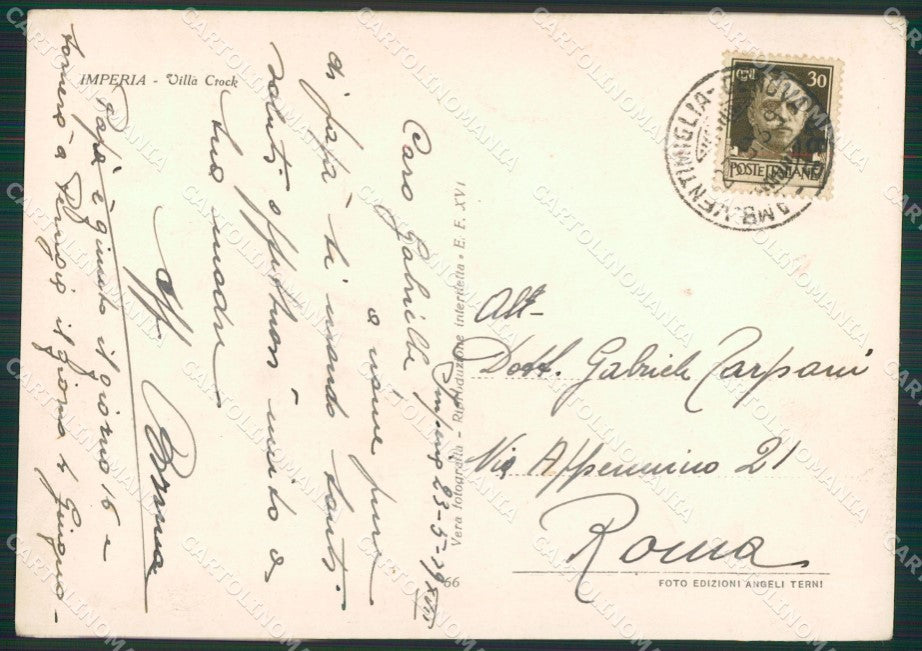 IMPERIA - Villa Crock
Imperia 23-5-39 XVII
Caro Gabriele
a nome pure
di papà ti mando tanti
saluti affettuosi unito a
tua madre
Papà è giunto il giorno 16 e
tornerà a Perugia il giorno 4 Giugno -
Vera fotografia - Riproduzione interdetta - E. F. XVI
66
30
POSTE ITALIANE
AMB. VENTIMIGLIA - GENOVA
All-
Dott. Gabriele Carpani
Via Appennino 21
Roma
FOTO EDIZIONI ANGELI TERNI
CARTOLINOMANIA